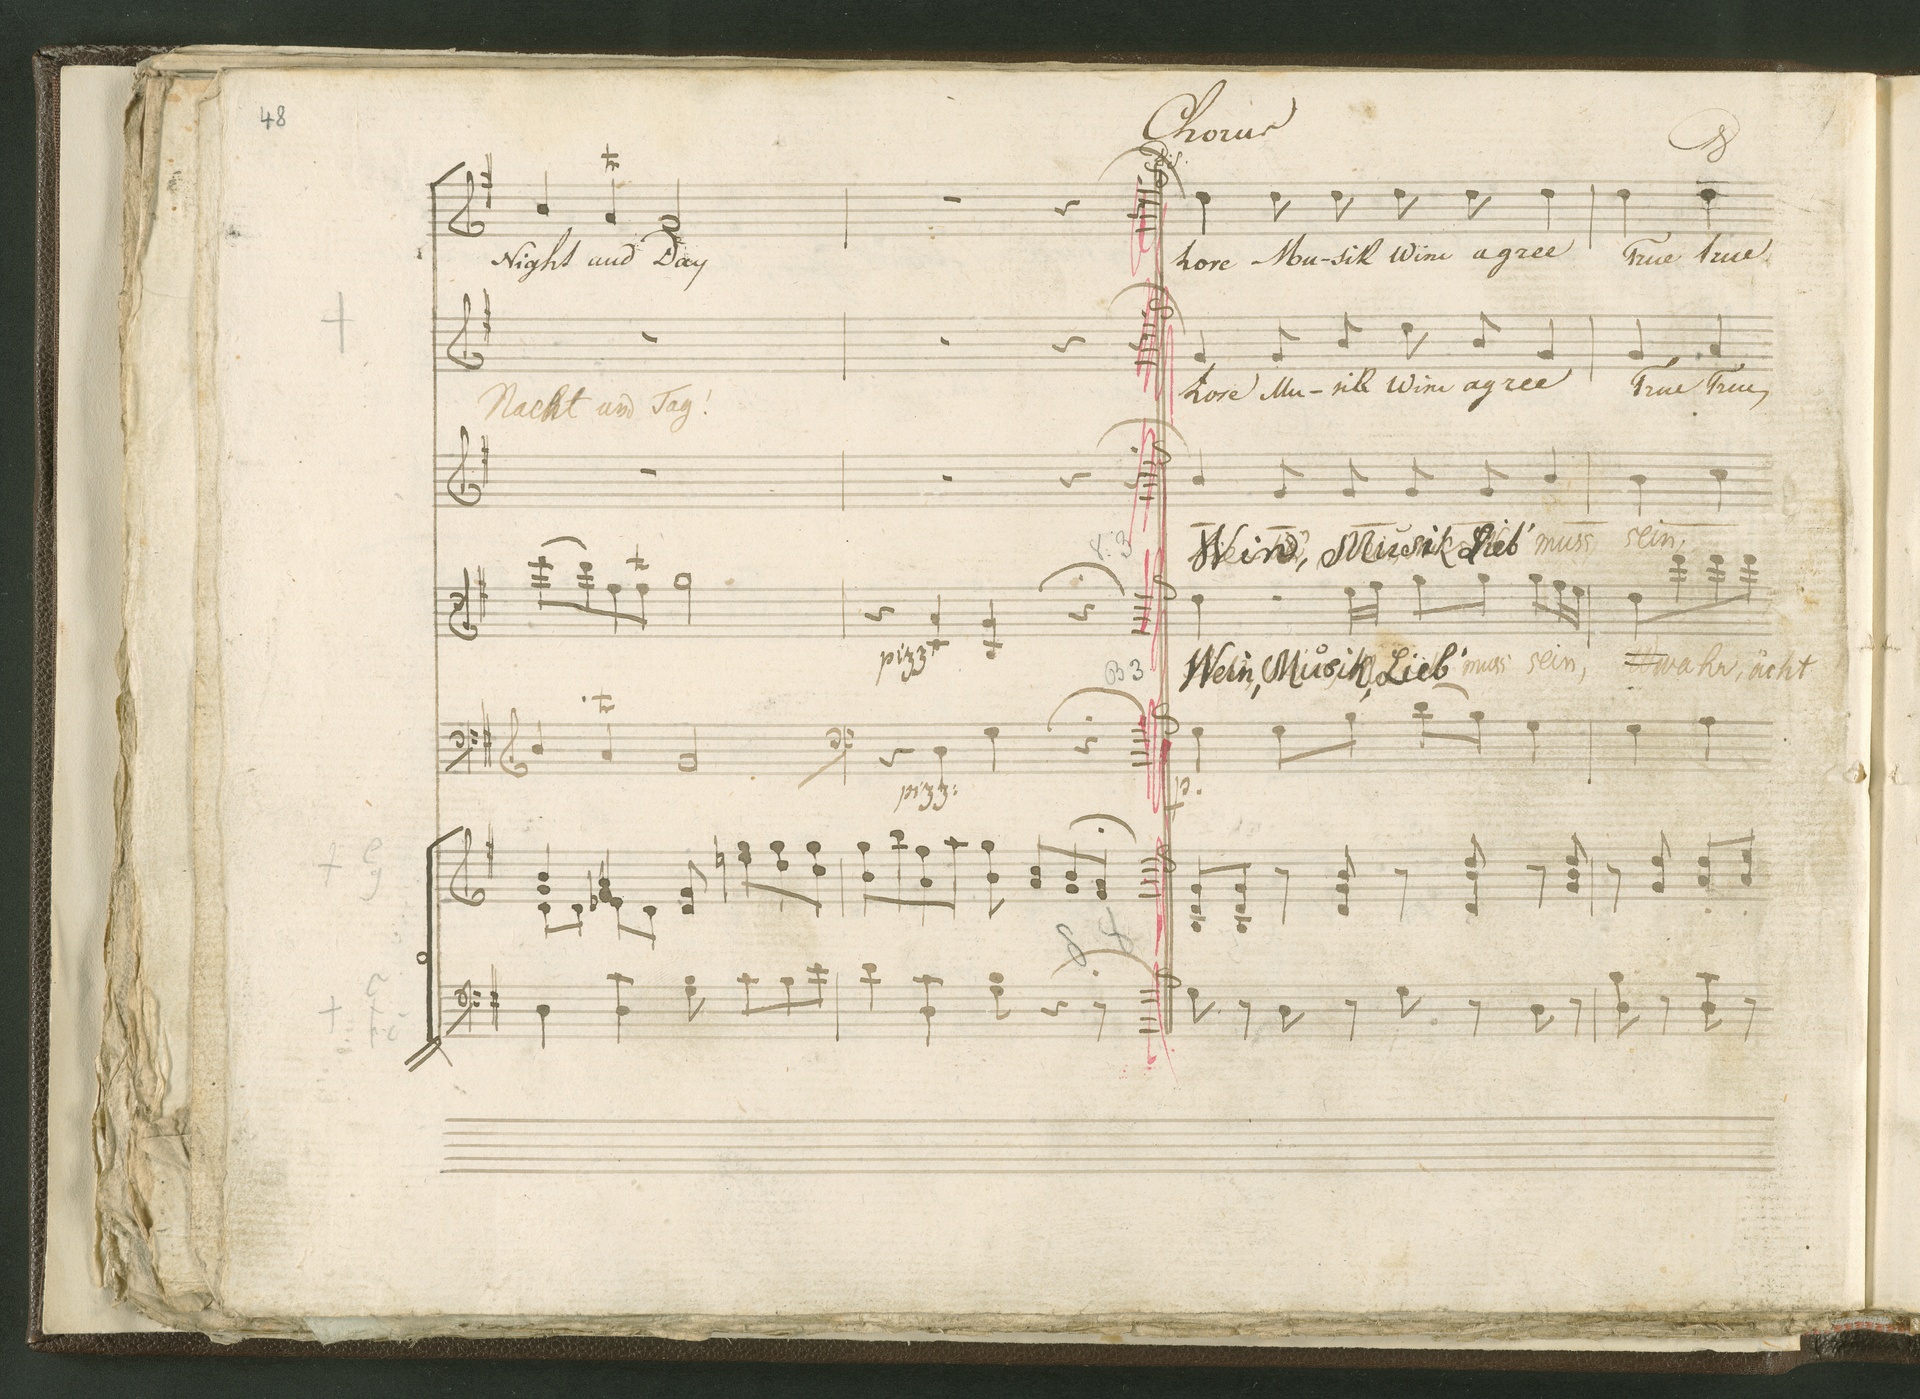 48
Chorus
tr
Night and Day
Love Mu-sik Wine agree True true
Nacht und Tag!
Love Mu-sik Wine agree True True,
V. 3
Wein, Musik Lieb' muss sein,
pizz
B 3
Wein, Musik, Lieb' muss sein, wahr, ächt
tr
pizz:
p.